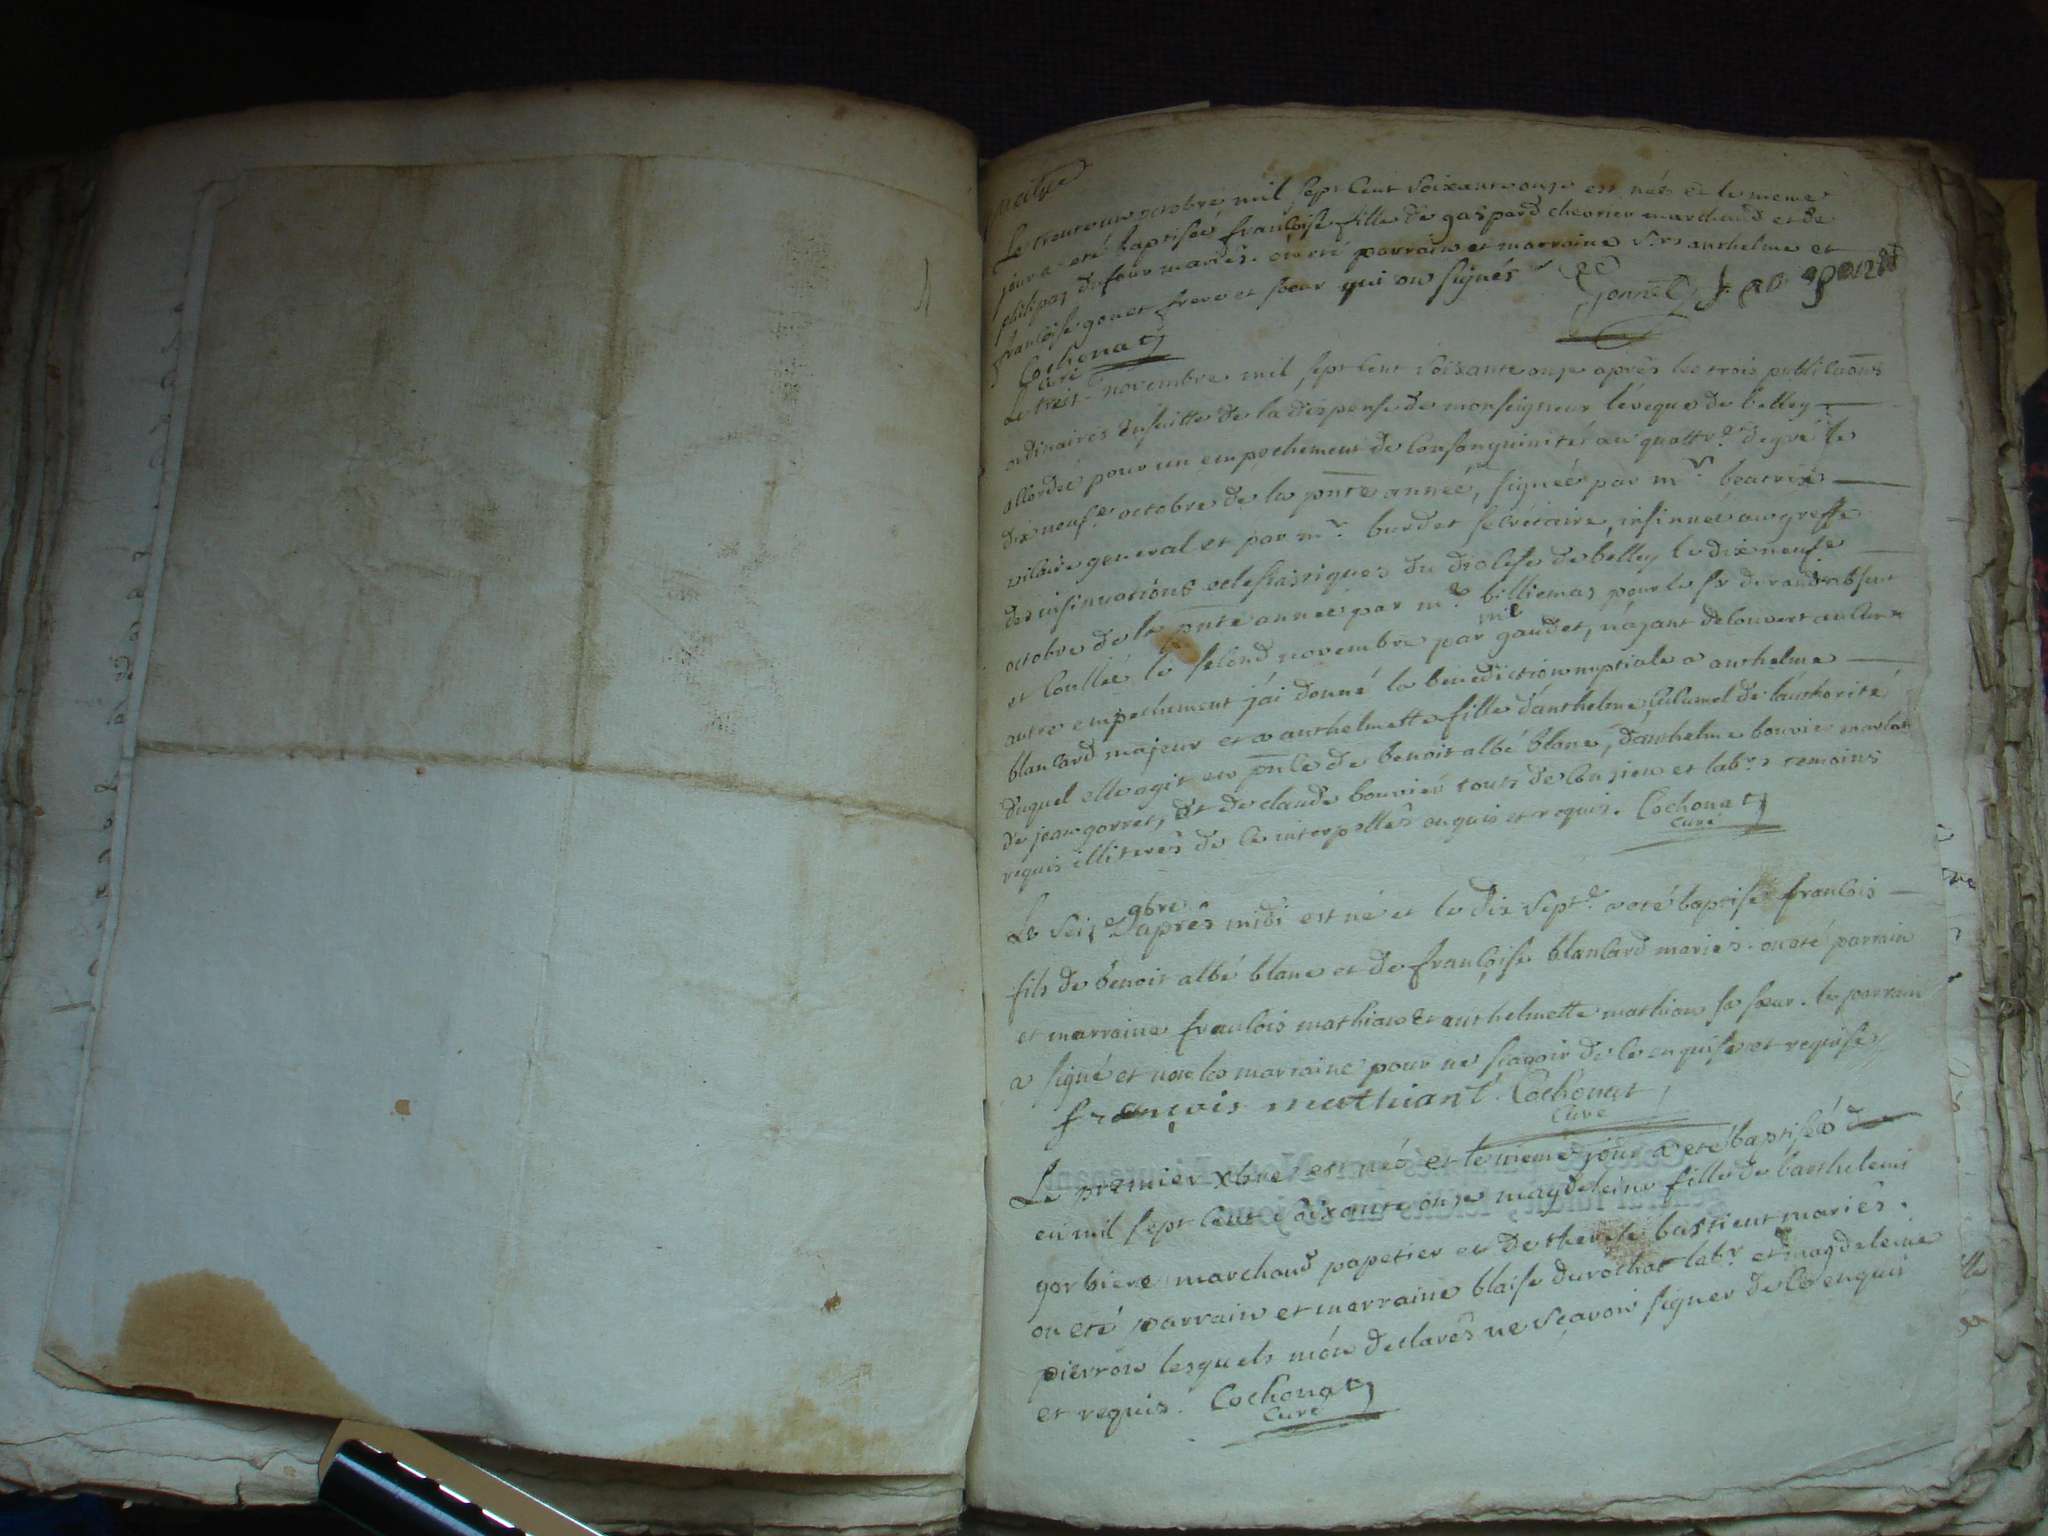 Le trente un octobre mil sept cent soixante onze est née et le meme
jour a eté baptisée françoise fille de gaspard chevrier marchand et de
philipaz dufour mariés. on eté parrain et marraine Srs anthelme et
françoise gonet frere et soeur qui on signés
Cochonat
Curé
Le trois novembre mil sept cent soixante onze aprés les trois publicaons
ordinaires ensuitte de la dispense de monseigneur l'éveque de belley
accordée pour un empechement de consanguinité au quattre degré le
dix neuf octobre de la pnte année, signée par mr béatrix
vicaire general et par mr. burdet secrétaire, insinuée au greffe
des insinuations eclesiastiques du diocese de belley le dix neufe
octobre de la pnte année par mr billiemaz pour le sr durand absent
et coullée le second novembre par me gaudet, n'ayant découvert aucun
autre empechement j'ai donné la benediction nuptiale a anthelme
blancard majeur et a anthelmette fille d'anthelme de l'authorité
duquel elle agit en pnce de benoit albé blanc, d'anthelme bouvier
de jean gorret, et de claude bouvier touts de et labrs temoins
requis illiterés de ce interpellés enquis et requis. Cochonat
curé
Le seize 9bre aprés midi est né et le dix sept a eté baptisé françois
fils de benoit albé blanc et de françoise blancard mariés. on eté parrain
et marraine françois mathian et anthelmette mathian sa soeur. le parrain
a signé et non la marraine pour ne sçavoir de ce enquise et requise
françois mathiant Cochonat
Curé
Le premier xbre est née et le meme jour a eté baptisée
en mil sept cent soixante onze magdeleine fille de barthelemi
gorbiere marchand papetier et de therese bastient mariés.
on eté parrain et marraine blaise durochat labr. et magdeleine
pierron lesquels m'on declarés ne sçavoir signer de ce enquis
et requis. Cochonat
curé